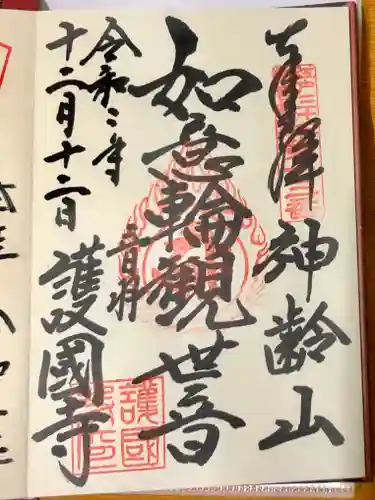 奉拝
神齢山
如意輪観世音
音羽
護國寺
令和二年
十二月十二日